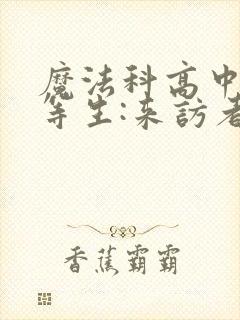 魔法科高中
等生:来訪者
香蕉霸霸